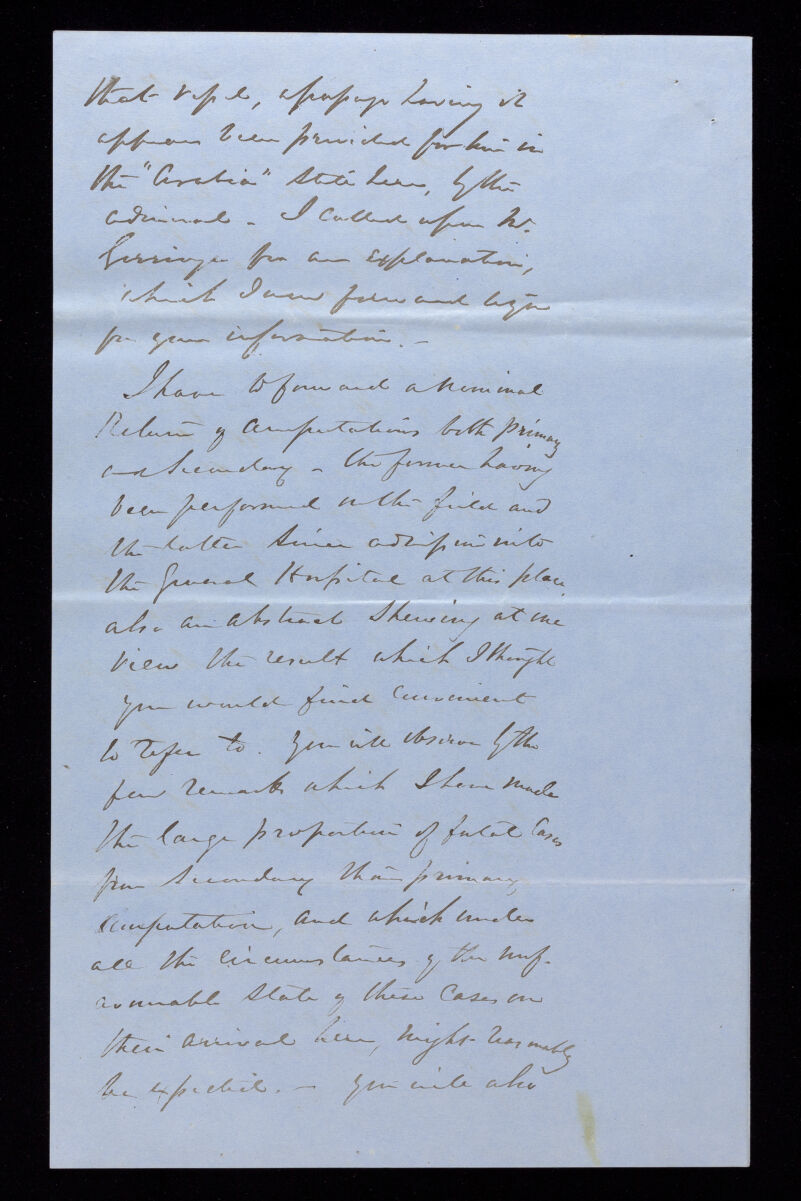 that vessel, a passage having it
appears been provided for him in
the "Arabia" state here, by the
admiral – I called upon Mr.
for an explanation,
which I now forward
for your information. –
I have to forward a Nominal
Return of Amputations both primary
and Secondary – the former having
been performed in the field and
the latter since admission into
the General Hospital at this place
also an abstract shewing at one
view the result which I thought
you would find convenient
to refer to. You will observe by the
few remarks which I have made
the large proportion of fatal Cases
from Secondary than primary
amputation, and which under
all the circumstances of the unf-
avourable state of these Cases on
their arrival here, might reasonably
be expected. – You will also